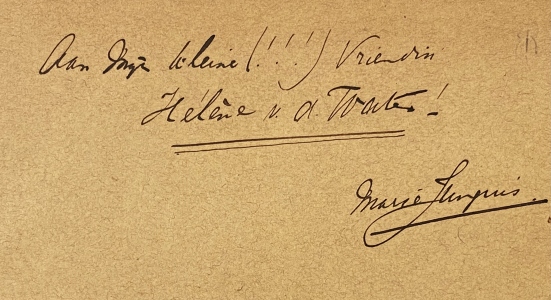 Aan Mijn kleine (!!!) Vriendin
Hélène v. d. Water!
Marie